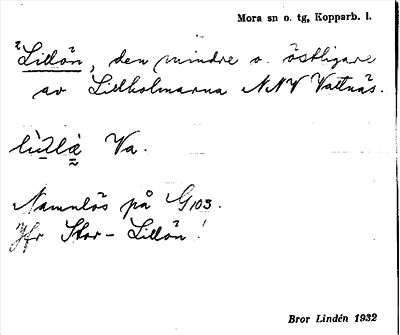 Mora sn o. tg, Kopparb. l.
2 Lillön, den mindre o. östligare
av Lillholmarna NNV Vattnäs.
Va.
Namnlös på G103.
Jfr Stor-Lillön!
Bror Lindén 1932